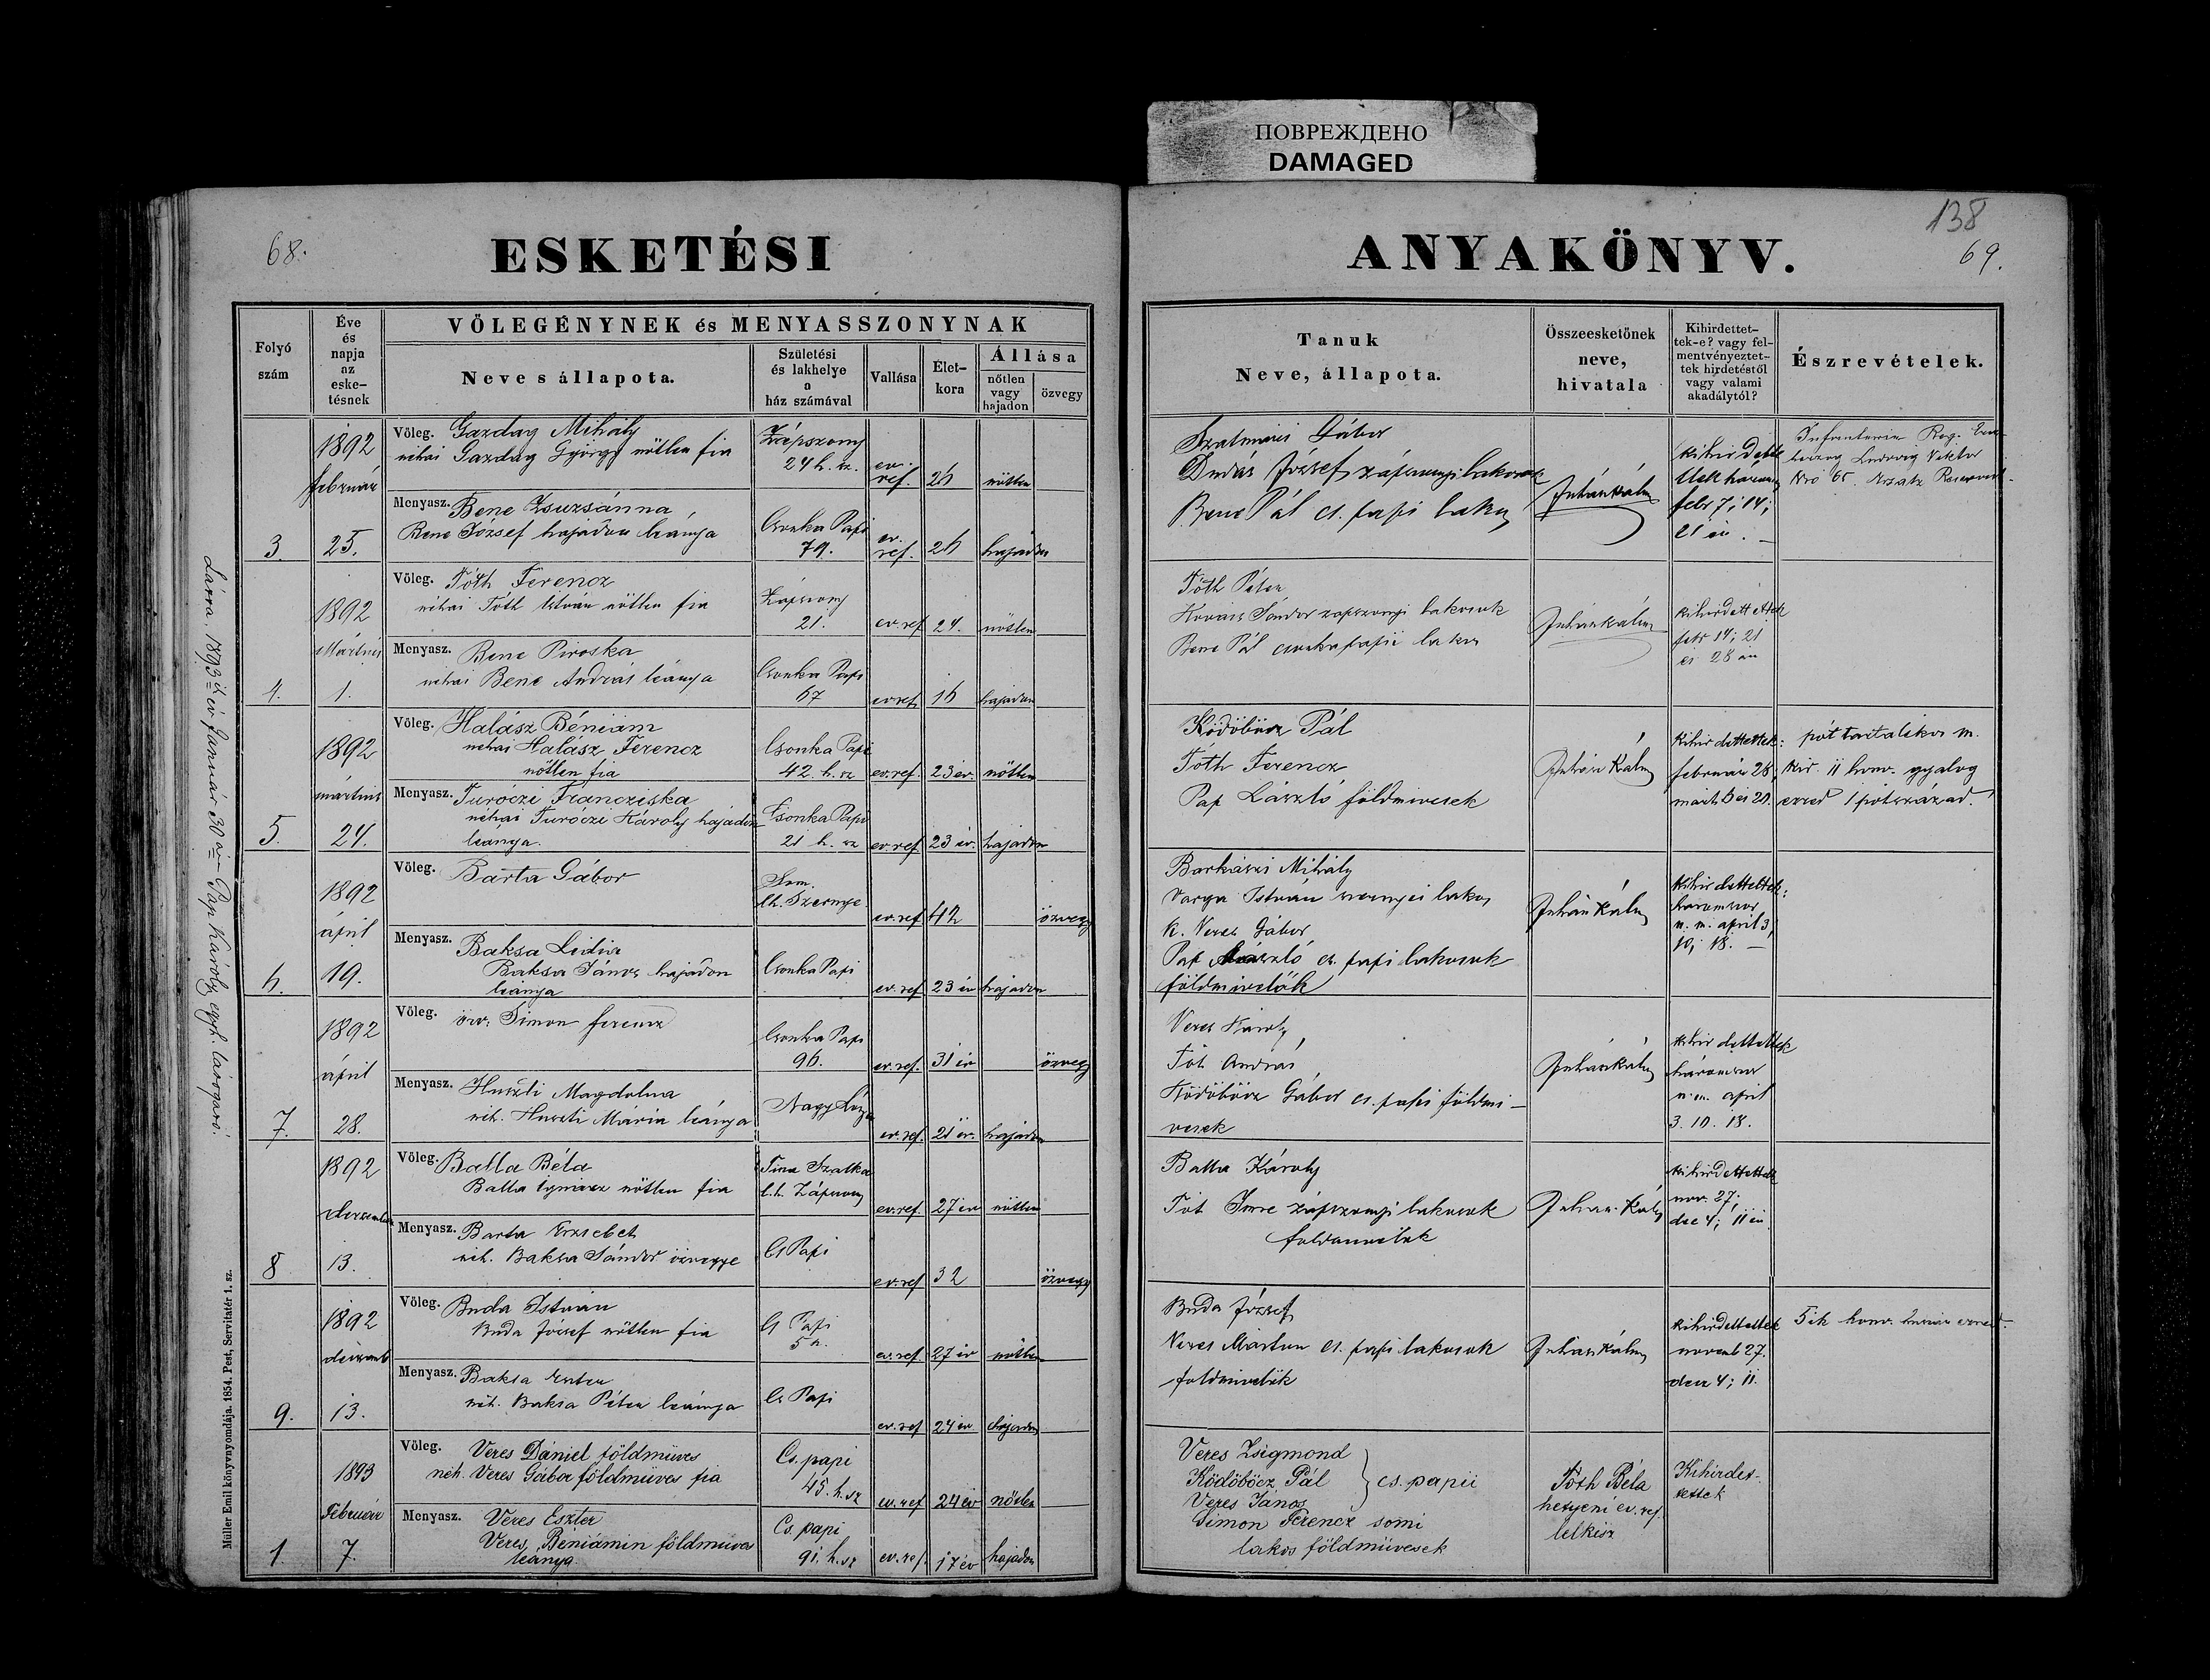 ПОВРЕЖДЕНО
DAMAGED
68.
ESKETÉSI
Folyó
szám
Éve
és
napja
az
eske-
tésnek
VÖLEGÉNYNEK és MENYASSZONYNAK
Neve s állapota.
Születési
és lakhelye
a
ház számával
Vallása
Élet-
kora
Állása
nőtlen
vagy
hajadon
özvegy
3.
1892
február
25.
Völeg. Gazdag Mihály
néhai Gazdag György nőtlen fia
Zápszony
24 h. sz.
ev.
ref.
26
nőtlen
Menyasz. Bene Zsuzsánna
Bene József hajadon leánya
Csonka Papi
79.
ev.
ref.
26
hajadon
4.
1892
Mártius
1.
Völeg. Tóth Ferencz
néhai Tóth István nőtlen fia
Zápszony
21.
ev. ref
24.
nőtlen
Menyasz. Bene Piroska
néhai Bene András leánya
Csonka Papi
67
ev ref
16
hajadon
5.
1892
mártius
24.
Völeg. Halász Béniám
néhai Halász Ferencz
nőtlen fia
Csonka Papi
42. h. sz
ev. ref.
23 év.
nőtlen
Menyasz. Turóczi Francziska
néhai Turóczi Károly hajadon
leánya.
Csonka Papi
21 h. sz
ev. ref
23 év.
hajadon
6.
1892
ápril
19.
Völeg. Barta Gábor
Som.
lh. Szernye
ev. ref
42
özvegy
Menyasz. Baksa Lidia
Baksa János hajadon
leánya
Csonka Papi
ev. ref
23 év
hajadon
7.
1892
ápril
28.
Völeg. özv. Simon ferencz
Csonka Papi
96.
ev. ref.
31 év
özvegy
Menyasz. Huszti Magdolna
néh. Huszti Mária leánya
Nagy
ev. ref.
21 év.
hajadon
8
1892
december
13.
Völeg. Balla Béla
Balla Ignácz nőtlen fia
Tisza Szalka
l.h. Zápszony
ev. ref
27 év
nőtlen
Menyasz. Barta Erzsébet
néh. Baksa Sándor özvegye
Cs Papi
ev. ref
32
özvegy
9.
1892
decemb
13.
Völeg. Buda István
Buda József nőtlen fia
Cs Papi
5
ev. ref
27 év
nőtlen
Menyasz. Baksa Eszter
néh. Baksa Péter leánya
Cs Papi
ev. ref
24 év
hajadon
1.
1893
Február
7.
Völeg. Veres Dániel földmüves
néh. Veres Gábor földmüves fia
Cs. papi
45. h. sz
ev. ref
24 év
nőtlen
Menyasz. Veres Eszter
Veres Béniámin földmüves
leánya
Cs. papi
91. h. sz
ev. ref.
17 év
hajadon
Látta. 1893 ik év Január 30 án Pap Károly egyh.
Müller Emil könyvnyomdája. 1854. Pest, Servitatér 1. sz.
138
69.
ANYAKÖNYV.
Tanuk
Neve, állapota.
Összeesketőnek
neve,
hivatala
Kihirdettet-
tek-e? vagy fel-
mentvényeztet-
tek hirdetéstől
vagy valami
akadálytól?
Észrevételek.
Szatmári Gábor
Dudás József zápszonyi lakosok
Bene Pál cs. papi lakos
Juhán Kálm
kihirdettettek három
febr 7; 14;
21 én.
Infanterie Reg.
herzog Ludwig Viktor
Nro 65. Ersatz Reservist.
Tóth Péter
Kovács Sándor zápszonyi lakosok
Bene Pál csonkapapii lakos
Juhán Kálm
kihirdettettek
febr 14; 21
és 28 án
Ködöböcz Pál
Tóth Ferencz
Pap László földmivesek
Juhán Kálm
kihirdettettek:
február 28,
márt. 6 és 20.
pót tartalékos m.
kir. 11 honv. gyalog
ezred 1 pótszázad.
Barkászi Mihály
Varga István szernyei lakos
K. Veres Gábor
Pap László cs. papi lakosok
földmivelők
Juhán Kálm
kihirdettettek:
háromszor
u. m. april 3,
10; 18.
Veres Károly
Tót András
Ködöböcz Gábor cs. papi földmi-
vesek
Juhán Kálm
kihirdettettek
háromszor
u. m. april
3. 10. 18.
Balla Károly
Tót Imre zápszonyi lakosok
foldmivelők
Juhán Kálm
kihirdettettek
nov. 27;
dec 4; 11 én
Buda József
Veres Márton cs. papi lakosok
földmivelők
Juhán Kálm
kihirdettettek
novemb 27.
dec 4; 11.
5 ik honv. huszár ezred.
Veres Zsigmond
Ködöböcz Pál
Veres János
cs. papii
Simon Ferencz somi
lakos földmüvesek
Tóth Béla
hetyeni ev. ref.
lelkész
Kihirdet-
tettek